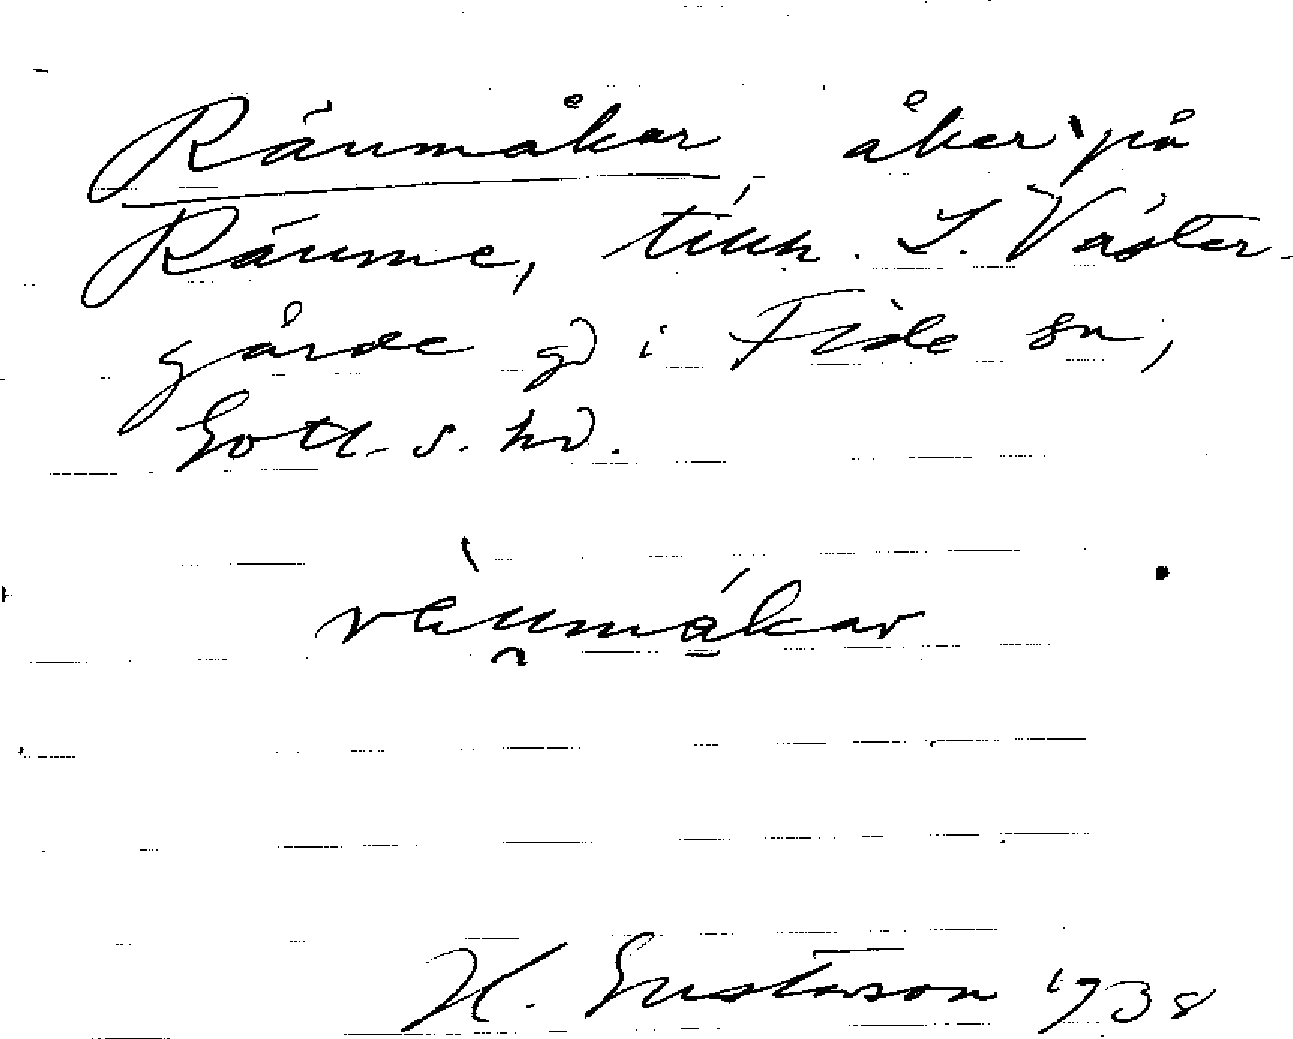 Räumåkar åker på
Räume, tillh. L. Väster-
gårde gd i Fide sn,
Gotl. s. hd.
räu̯måkar
H. Gustavson 1938